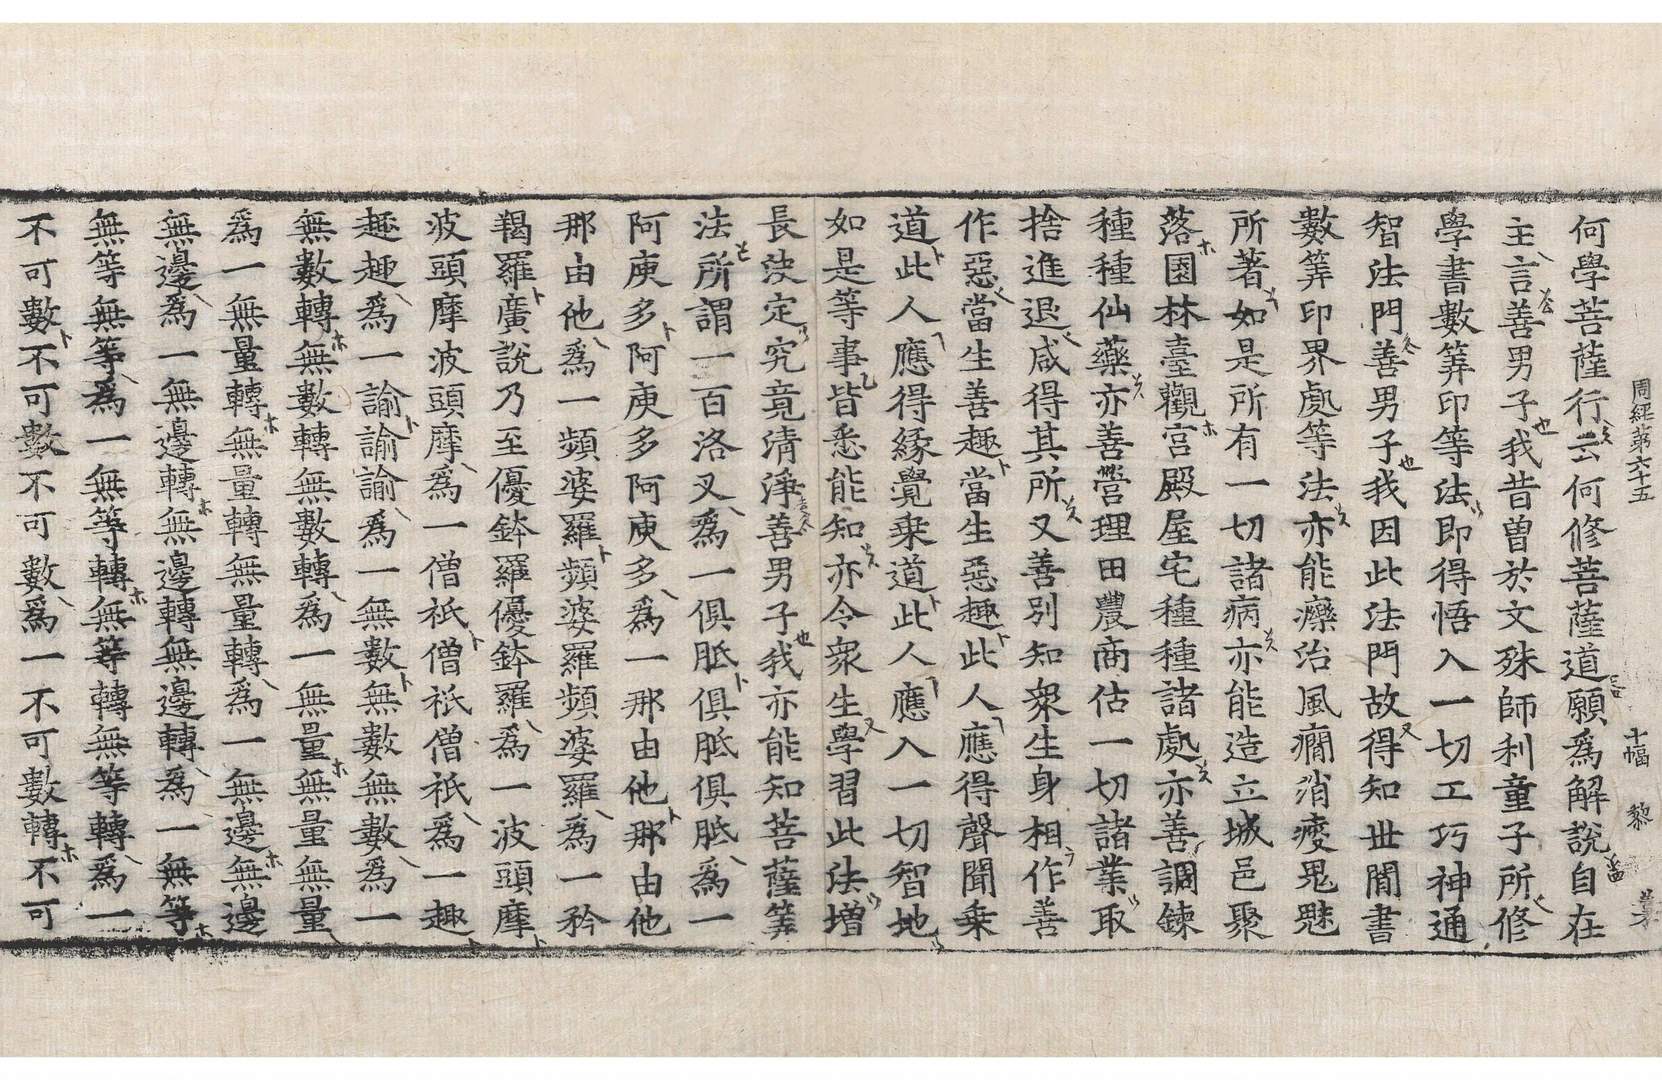 周經第六十五　十幅　黎
何學菩薩行云何修菩薩道願爲解說自在
主言善男子我昔曾於文殊師利童子所修
學書數筭印等法即得悟入一切工巧神通
智法門善男子我因此法門故得知世間書
數筭印界處等法亦能療治風癎消瘦鬼魅
所著如是所有一切諸病亦能造立城邑聚
落園林臺觀宮殿屋宅種種諸處亦善調鍊
種種仙藥亦善營理田農商估一切諸業取
捨進退咸得其所又善別知衆生身相作善
作惡當生善趣當生惡趣此人應得聲聞乗
道此人應得緣覺乗道此人應入一切智地
如是等事皆悉能知亦令衆生學習此法增
長決定究竟清淨善男子我亦能知菩薩筭
法所謂一百洛叉爲一俱胝俱胝俱胝爲一
阿庾多阿庾多阿庾多爲一那由他那由他
那由他爲一頻婆羅頻婆羅頻婆羅爲一矜
羯羅廣說乃至優鉢羅優鉢羅爲一波頭摩
波頭摩波頭摩爲一僧祇僧祇僧祇爲一趣
趣趣爲一諭諭諭爲一無數無數無數爲一
無數轉無數轉無數轉爲一無量無量無量
爲一無量轉無量轉無量轉爲一無邊無邊
無邊爲一無邊轉無邊轉無邊轉爲一無等
無等無等爲一無等轉無等轉無等轉爲一
不可數不可數不可數爲一不可數轉不可